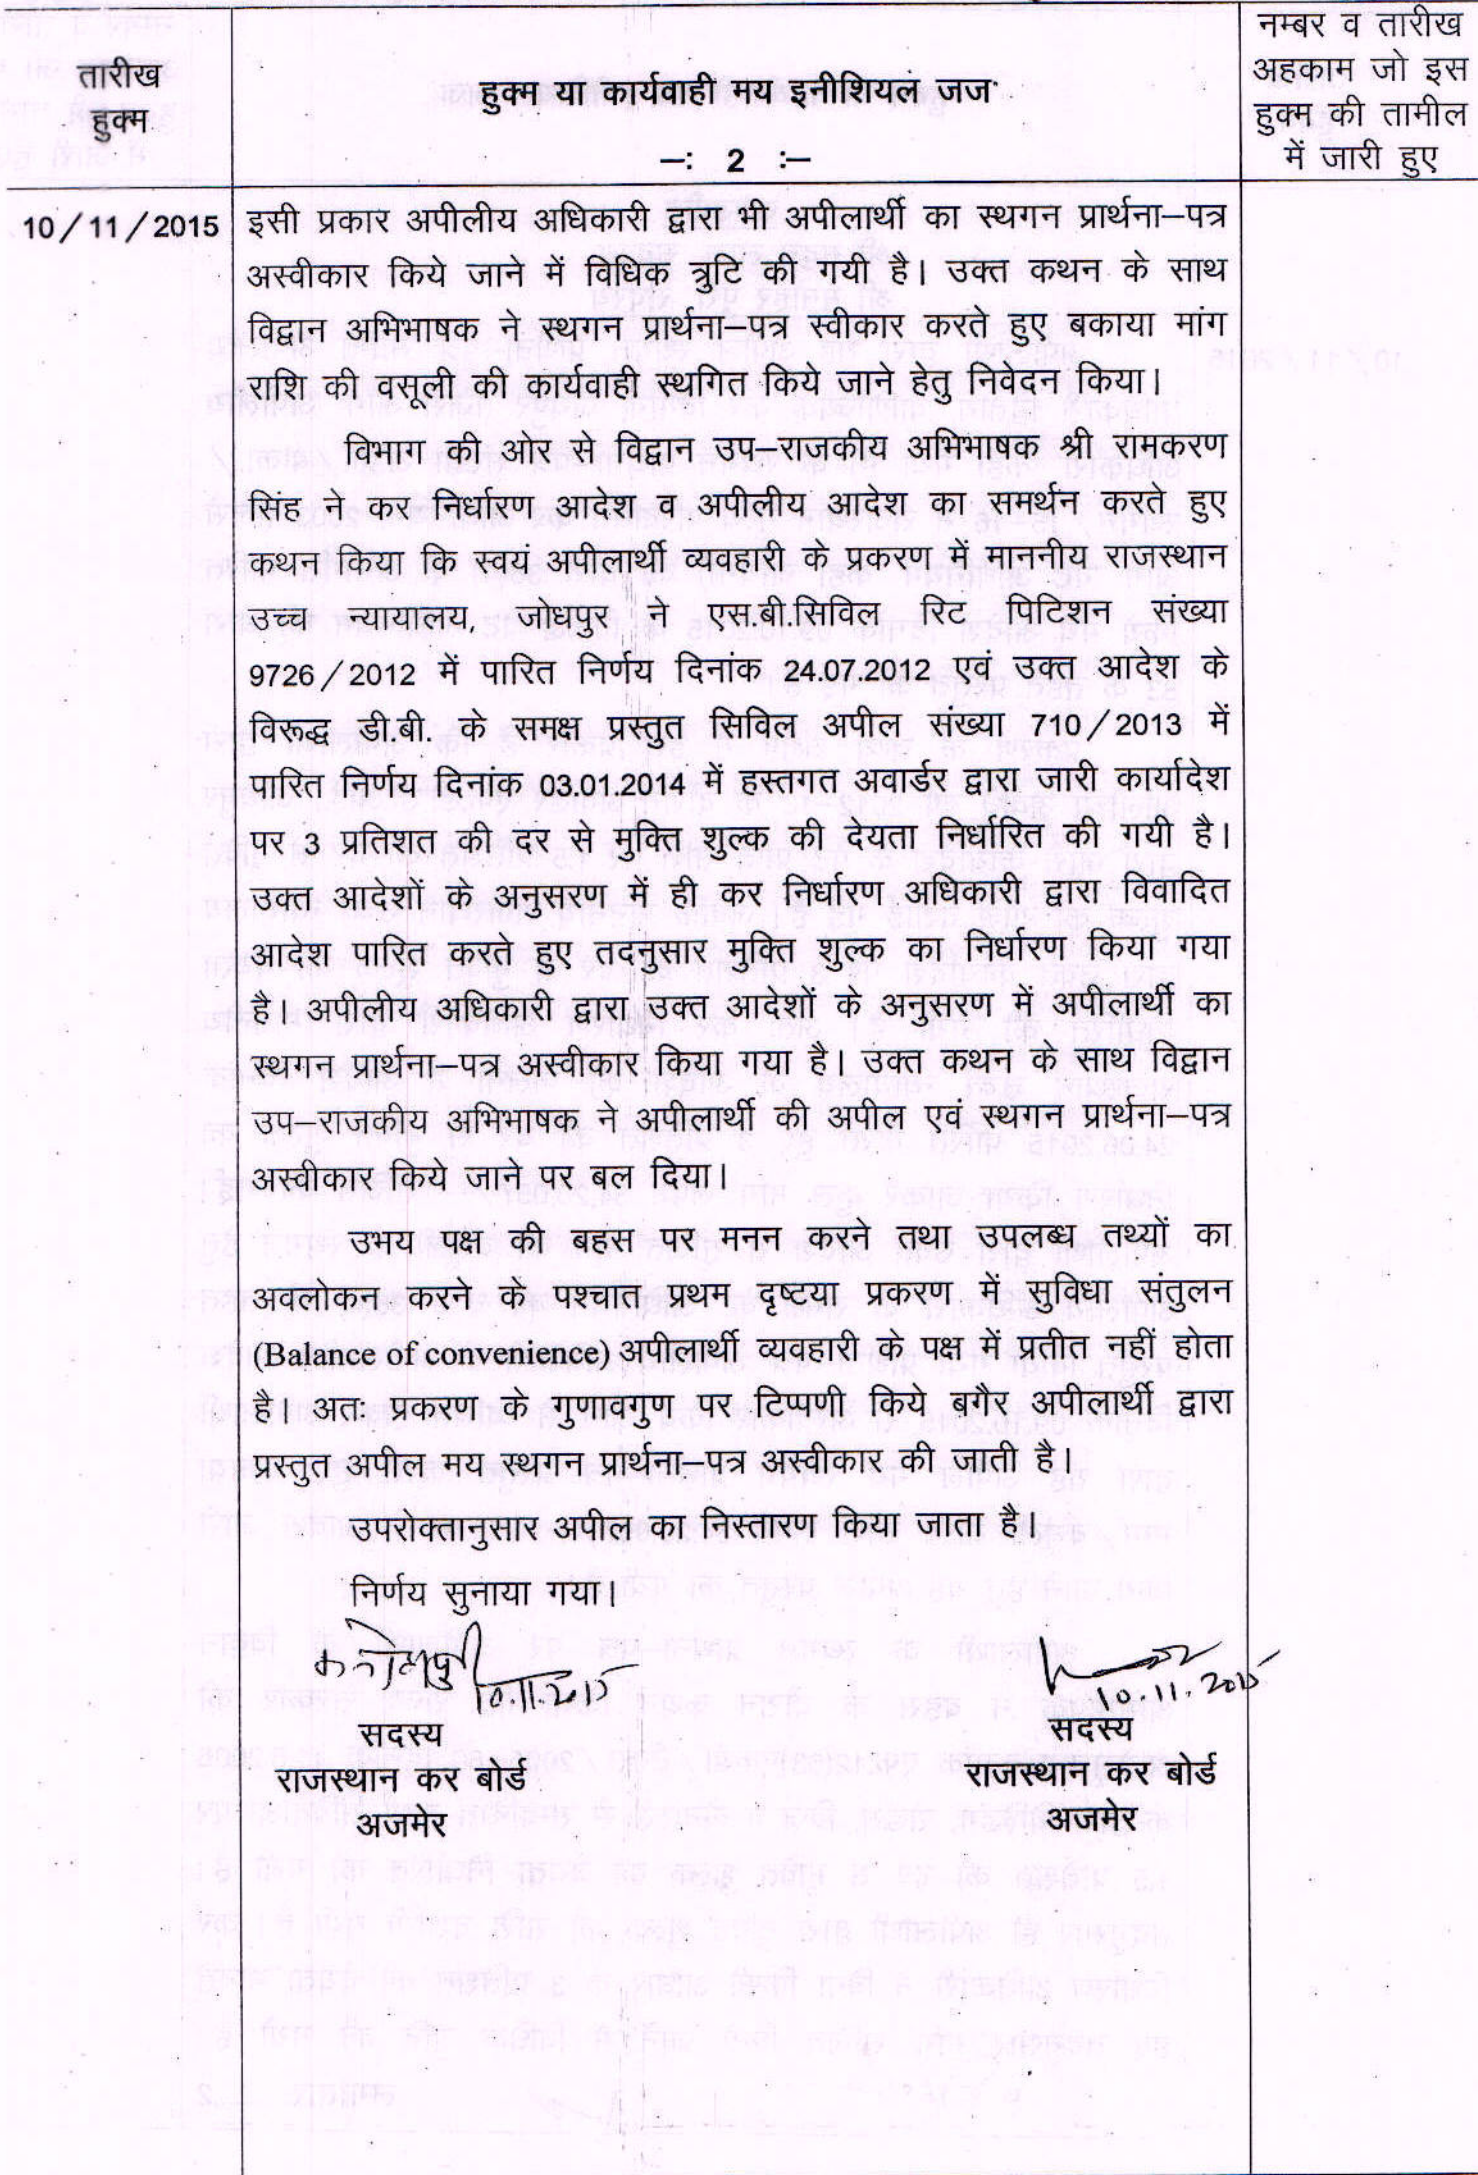 तारीख
हुक्म
हुक्म या कार्यवाही मय इनीशियल जज
–: 2 :–
नम्बर व तारीख
अहकाम जो इस
हुक्म की तामील
में जारी हुए
10/11/2015
इसी प्रकार अपीलीय अधिकारी द्वारा भी अपीलार्थी का स्थगन प्रार्थना–पत्र
अस्वीकार किये जाने में विधिक त्रुटि की गयी है। उक्त कथन के साथ
विद्वान अभिभाषक ने स्थगन प्रार्थना–पत्र स्वीकार करते हुए बकाया मांग
राशि की वसूली की कार्यवाही स्थगित किये जाने हेतु निवेदन किया।
विभाग की ओर से विद्वान उप–राजकीय अभिभाषक श्री रामकरण
सिंह ने कर निर्धारण आदेश व अपीलीय आदेश का समर्थन करते हुए
कथन किया कि स्वयं अपीलार्थी व्यवहारी के प्रकरण में माननीय राजस्थान
उच्च न्यायालय, जोधपुर ने एस.बी.सिविल रिट पिटिशन संख्या
9726/2012 में पारित निर्णय दिनांक 24.07.2012 एवं उक्त आदेश के
विरूद्ध डी.बी. के समक्ष प्रस्तुत सिविल अपील संख्या 710/2013 में
पारित निर्णय दिनांक 03.01.2014 में हस्तगत अवार्डर द्वारा जारी कार्यादेश
पर 3 प्रतिशत की दर से मुक्ति शुल्क की देयता निर्धारित की गयी है।
उक्त आदेशों के अनुसरण में ही कर निर्धारण अधिकारी द्वारा विवादित
आदेश पारित करते हुए तदनुसार मुक्ति शुल्क का निर्धारण किया गया
है। अपीलीय अधिकारी द्वारा उक्त आदेशों के अनुसरण में अपीलार्थी का
स्थगन प्रार्थना–पत्र अस्वीकार किया गया है। उक्त कथन के साथ विद्वान
उप–राजकीय अभिभाषक ने अपीलार्थी की अपील एवं स्थगन प्रार्थना–पत्र
अस्वीकार किये जाने पर बल दिया।
उभय पक्ष की बहस पर मनन करने तथा उपलब्ध तथ्यों का
अवलोकन करने के पश्चात प्रथम दृष्टया प्रकरण में सुविधा संतुलन
(Balance of convenience) अपीलार्थी व्यवहारी के पक्ष में प्रतीत नहीं होता
है। अतः प्रकरण के गुणावगुण पर टिप्पणी किये बगैर अपीलार्थी द्वारा
प्रस्तुत अपील मय स्थगन प्रार्थना–पत्र अस्वीकार की जाती है।
उपरोक्तानुसार अपील का निस्तारण किया जाता है।
निर्णय सुनाया गया।
10.11.2015
10.11.2015
सदस्य
सदस्य
राजस्थान कर बोर्ड
राजस्थान कर बोर्ड
अजमेर
अजमेर